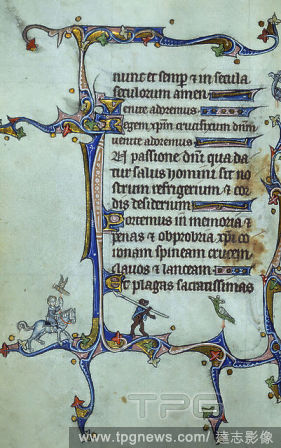 nunc et semp ⁊ in secula
seculorum amen
Venite adoremus
Regem xp̄m crucifixum dn̄m
venite adoremus
In passione dn̄i qua da
tur salus homini sit no
strum refrigerium ⁊ cor
dis desiderium
Portemus in memoria ⁊
penas ⁊ obprobria xp̄i co
ronam spineam crucem
clauos ⁊ lanceam
Et plagas sacratissimas
TPG
www.tpgnews.com 達志影像